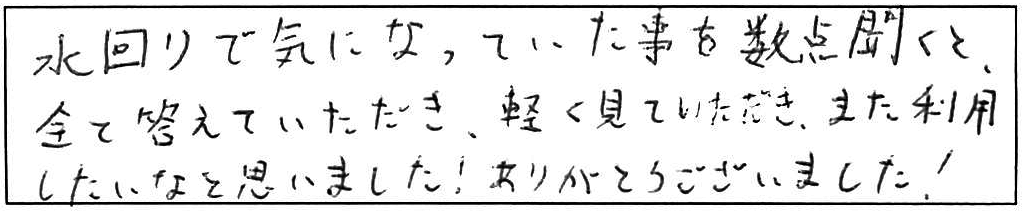 水回りで気になっていた事を数点聞くと、
全て答えていただき、軽く見ていただき、また利用
したいなと思いました！ありがとうございました！